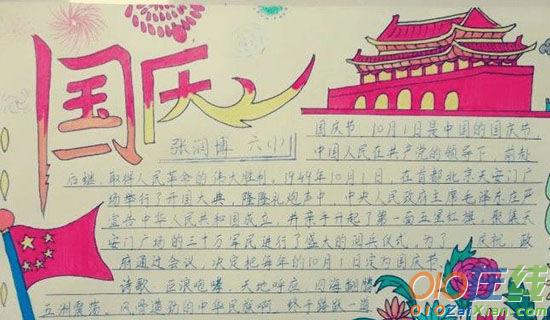 国庆
张润博 六(1)
国庆节，10月1日是中国的国庆节，
中国人民在共产党的领导下，前赴
后继，取得人民革命的伟大胜利，1949年10月1日，在首都北京天安门广
场举行了开国大典，隆隆礼炮声中，中央人民政府主席毛泽东庄严
宣告中华人民共和国成立，并亲手升起了第一面五星红旗，聚集天
安门广场的三十万军民进行了盛大的阅兵仪式，为了 庆祝，政
府通过会议，决定把每年的10月1日定为国庆节。
诗歌：巨浪咆哮，天地呼应，四海翻腾
五洲震荡，风雷激励的中华民族啊，终于踏破一道
在线
ZaiXian.com